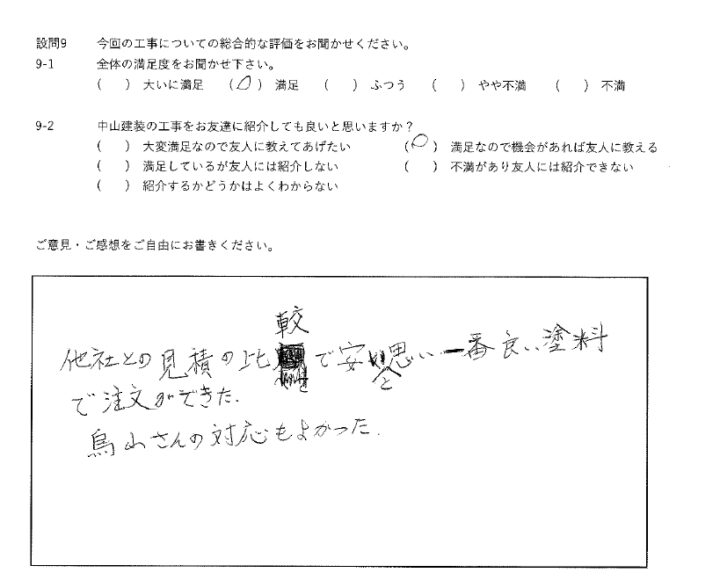 設問9 今回の工事についての総合的な評価をお聞かせください。
9-1 全体の満足度をお聞かせ下さい。
( ) 大いに満足 (○) 満足 ( ) ふつう ( ) やや不満 ( ) 不満
9-2 中山建装の工事をお友達に紹介しても良いと思いますか?
( ) 大変満足なので友人に教えてあげたい (○) 満足なので機会があれば友人に教える
( ) 満足しているが友人には紹介しない ( ) 不満があり友人には紹介できない
( ) 紹介するかどうかはよくわからない
ご意見・ご感想をご自由にお書きください。
他社との見積の比較で安いと思い一番良い塗料
で注文ができた.
鳥山さんの対応もよかった.